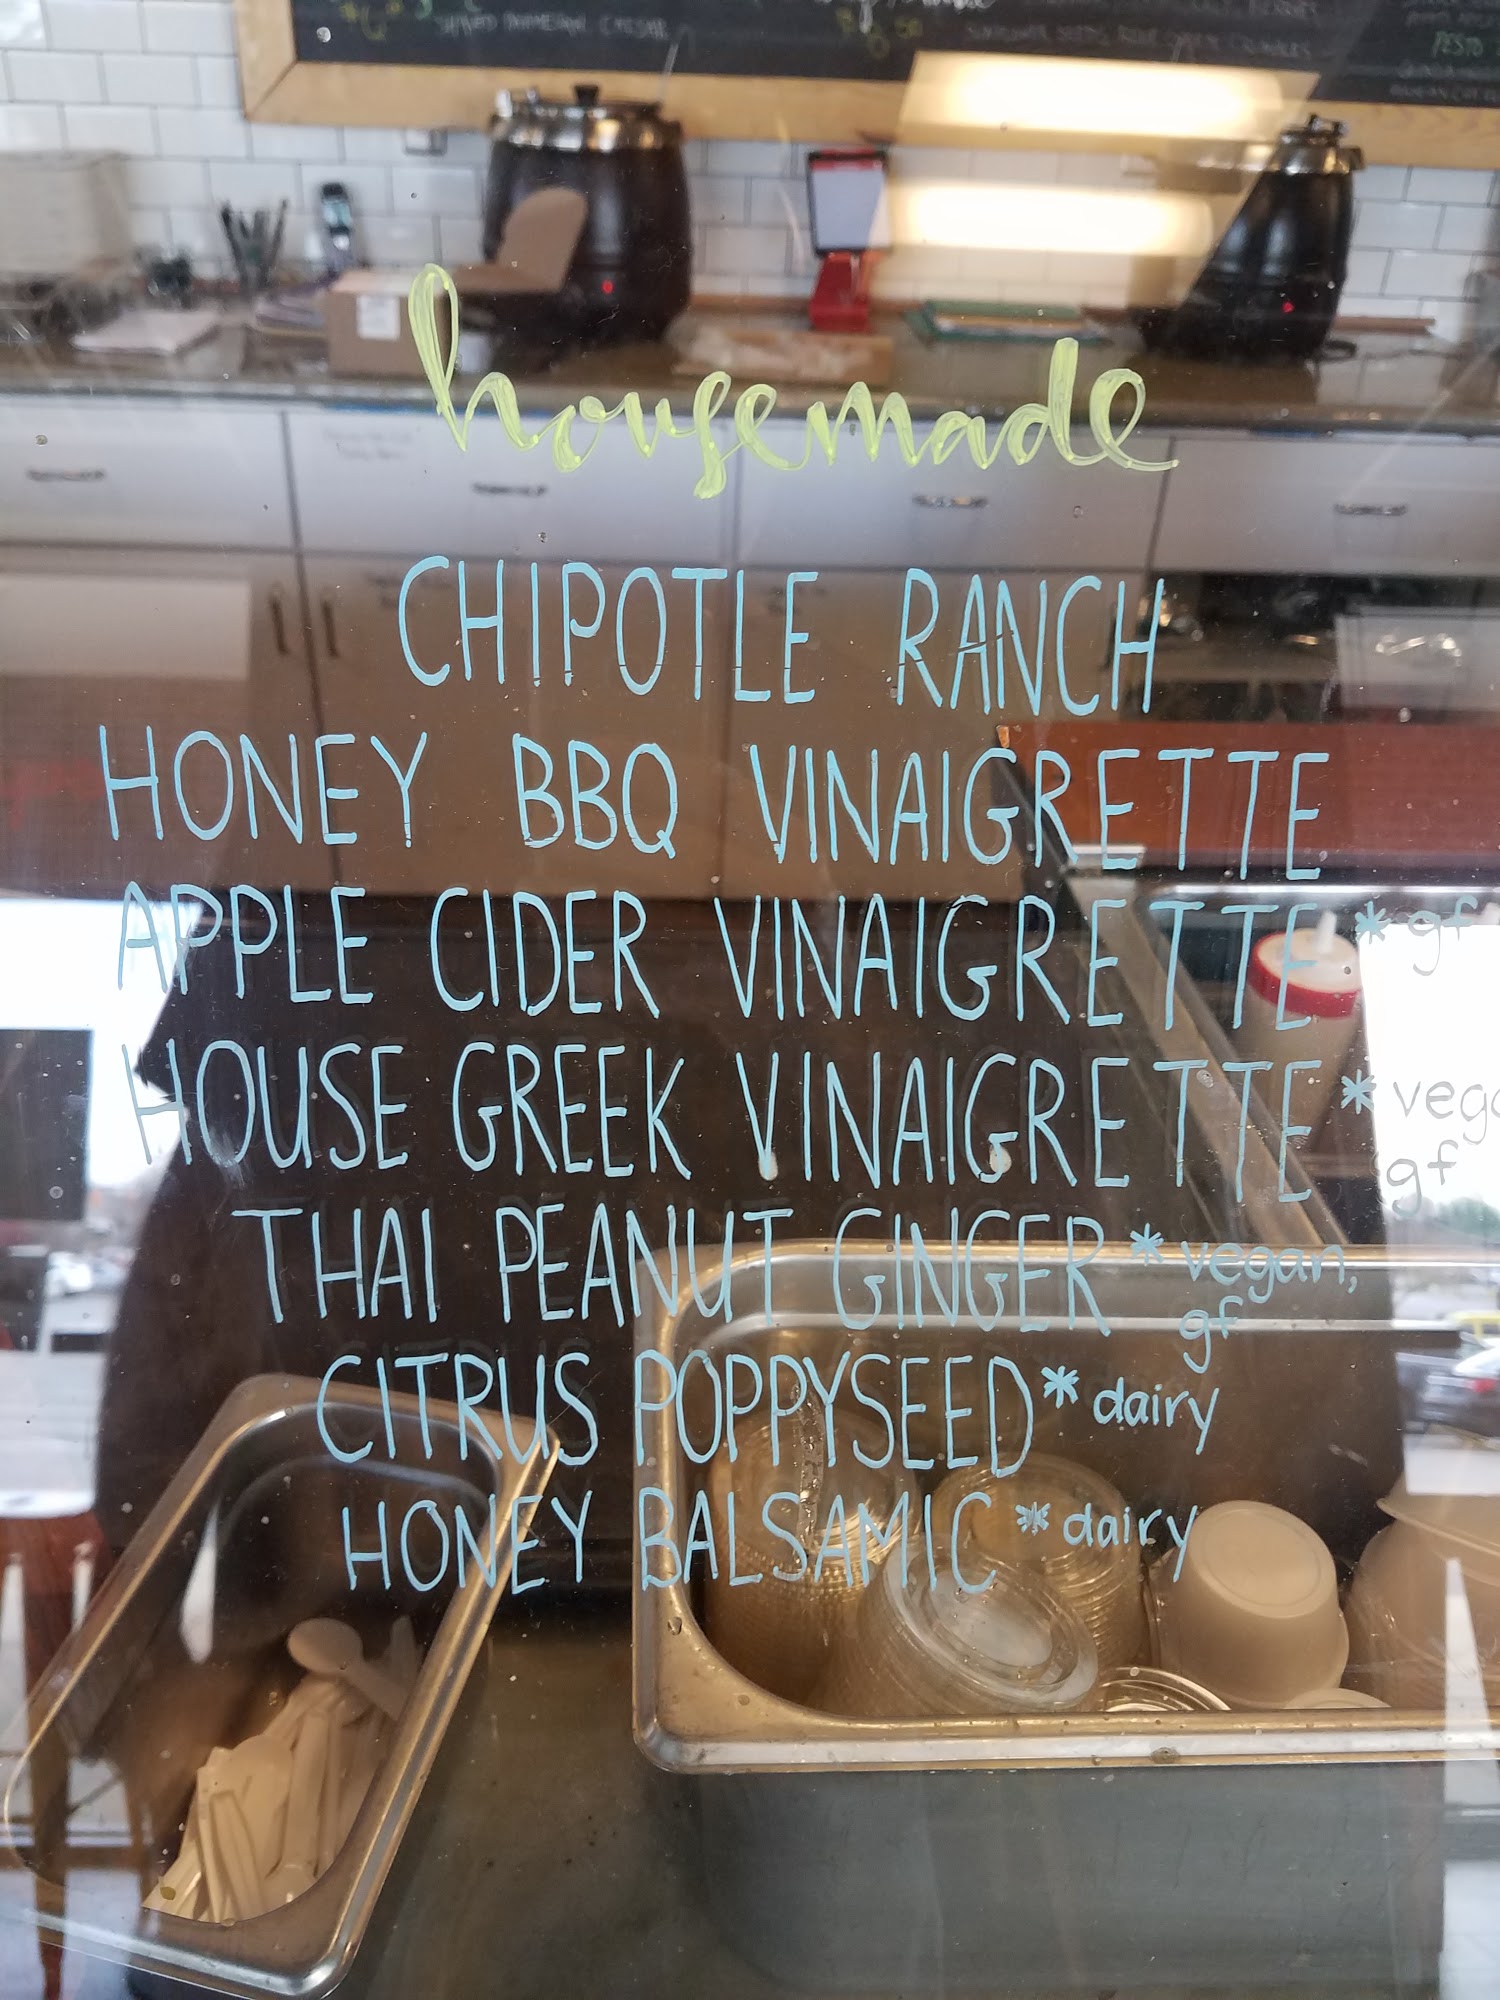 SHAVED PARMESAN, CAESAR
PESTO
homemade
CHIPOTLE RANCH
HONEY BBQ VINAIGRETTE
APPLE CIDER VINAIGRETTE * gf
HOUSE GREEK VINAIGRETTE *
gf
THAI PEANUT GINGER * vegan,
gf
CITRUS POPPYSEED * dairy
HONEY BALSAMIC * dairy